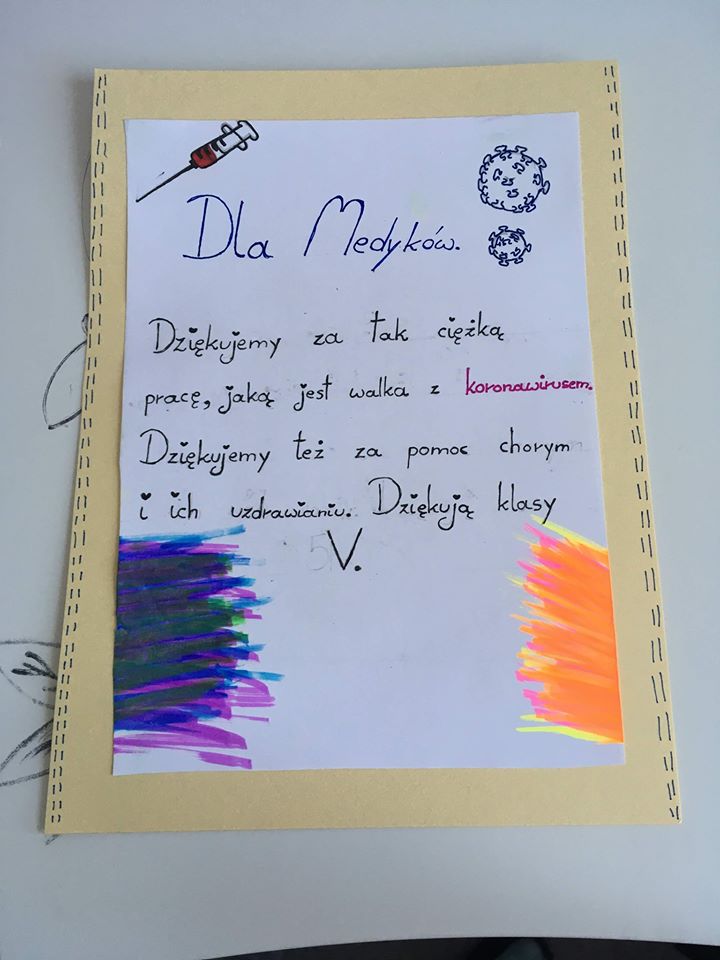 Dla Medyków.
Dziękujemy za tak ciężką
pracę, jaką jest walka z koronawirusem.
Dziękujemy też za pomoc chorym
i ich uzdrawianiu. Dziękują klasy
V.